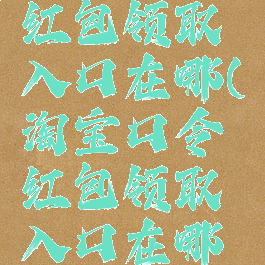 红包领取
入口在哪(
淘宝口令
红包领取
入口在哪